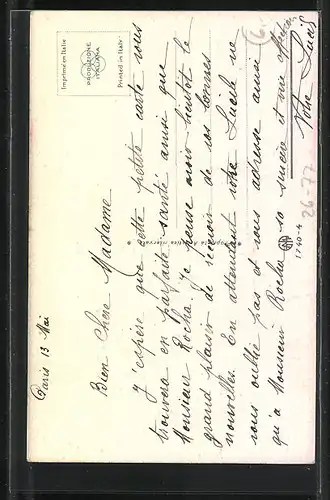 Paris 13 Mai
Bien Chère Madame
J'espère que cette petite carte vous
trouvera en parfaite santé ainsi que
Monsieur Rocha. Je pense avoir bientôt le
grand plaisir de recevoir de vos bonnes
nouvelles. En attendant votre Lucile ne
vous oublie pas et vous adresse ainsi
qu'à Monsieur Rocha sa sincère et vive affection
Votre Lucile
Imprimé en Italie
PRODUZIONE
ITALIANA
Printed in Italy
1740-4
26-77